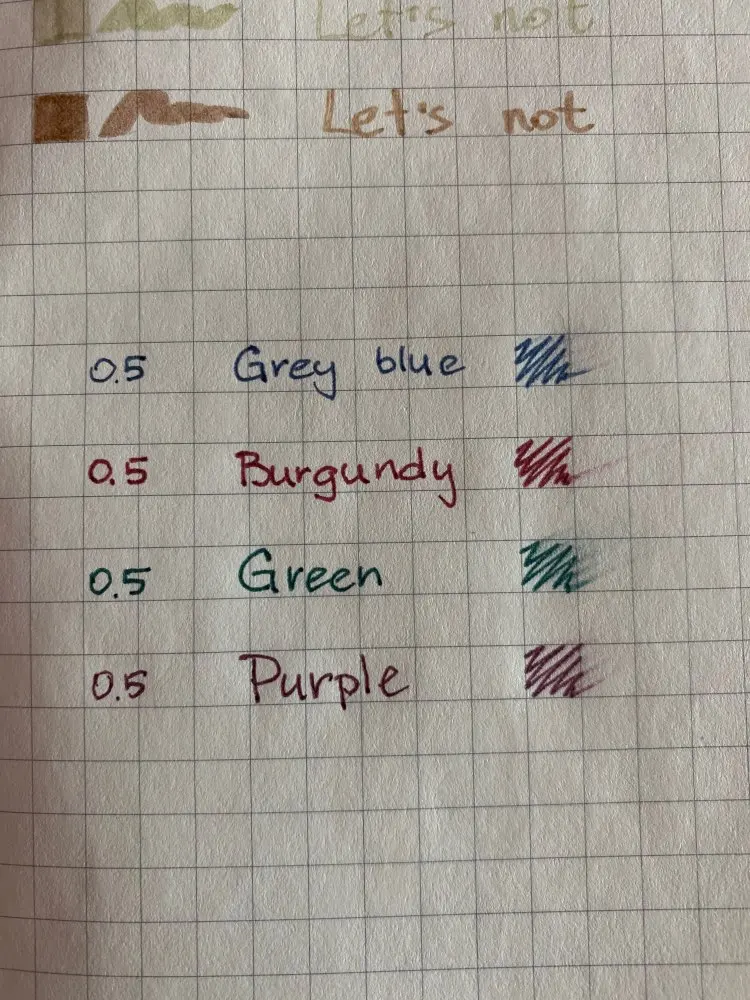 Let's not
Let's not
0.5 Grey blue
0.5 Burgundy
0.5 Green
0.5 Purple